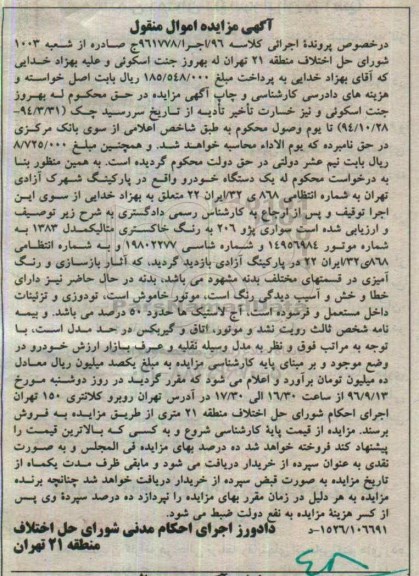 آگهی مزایده اموال منقول
درخصوص پروندهٔ اجرائی کلاسه ۹۶/اجرا/۹۶۱۷۷۸ج صادره از شعبه ۱۰۰۳
شورای حل اختلاف منطقه ۲۱ تهران له بهروز جنت اسکوئی و علیه بهزاد خدایی
که آقای بهزاد خدایی به پرداخت مبلغ ۱۸۵/۵۴۸/۰۰۰ ریال بابت اصل خواسته و
هزینه های دادرسی کارشناسی و چاپ آگهی مزایده در حق محکوم له بهروز
جنت اسکوئی و نیز خسارت تأخیر تأدیه از تاریخ سررسید چک (۹۴/۳/۳۱-
۹۴/۱۰/۲۸) تا یوم وصول محکوم به طبق شاخص اعلامی از سوی بانک مرکزی
در حق نامبرده که یوم الاداء محاسبه خواهد شد. و همچنین مبلغ ۸/۷۲۵/۰۰۰
ریال بابت نیم عشر دولتی در حق دولت محکوم گردیده است. به همین منظور بنا
به درخواست محکوم له یک دستگاه خودرو واقع در پارکینگ شهرک آزادی
تهران به شماره انتظامی ۸۶۸ ی ۳۲/ایران ۲۲ متعلق به بهزاد خدایی از سوی این
اجرا توقیف و پس از ارجاع به کارشناس رسمی دادگستری به شرح زیر توصیف
و ارزیابی شده است سواری پژو ۲۰۶ به رنگ خاکستری متالیک مدل ۱۳۸۳ به
شماره موتور ۱۴۹۵۶۹۸۴ و شماره شاسی ۱۹۸۰۲۲۷۷ و به شماره انتظامی
۸۶۸ی۳۲/ایران ۲۲ در پارکینگ آزادی بازدید گردید، که آثار بازسازی و رنگ
آمیزی در قسمتهای مختلف بدنه مشهود می باشد، بدنه در حال حاضر نیز دارای
خطا و خش و آسیب دیدگی رنگ است، موتور خاموش است، تودوزی و تزئینات
داخل مستعمل و فرسوده است، آج لاستیک ها حدود ۵۰ درصد می باشد. و بیمه
نامه شخص ثالث رویت نشد و موتور، اتاق و گیربکس در حد مدل است، با
توجه به مراتب فوق و نظر به مدل وسیله نقلیه و عرف بازار ارزش خودرو در
وضع موجود و بر مبنای پایه کارشناسی مزایده به مبلغ یکصد میلیون ریال معادل
ده میلیون تومان برآورد و اعلام می شود که مقرر گردید در روز دوشنبه مورخ
۹۶/۹/۱۳ از ساعت ۱۶/۳۰ الی ۱۷/۳۰ در آدرس تهران روبرو کلانتری ۱۵۰ تهران
اجرای احکام شورای حل اختلاف منطقه ۲۱ متری از طریق مزایده به فروش
برسند. مزایده از قیمت پایهٔ کارشناسی شروع و به کسی که بالاترین قیمت را
پیشنهاد کند فروخته خواهد شد ده درصد بهای مزایده فی المجلس و به صورت
نقدی به عنوان سپرده از خریدار دریافت می شود و مابقی ظرف مدت یکماه از
تاریخ مزایده به صورت قبض سپرده از خریدار دریافت خواهد شد چنانچه برنده
مزایده به هر دلیل در زمان مقرر بهای مزایده را نپردازد ده درصد سپردهٔ وی پس
از کسر هزینهٔ مزایده به نفع دولت ضبط می شود.
۱۵۲۶/۱۰۶۶۹۱-د دادورز اجرای احکام مدنی شورای حل اختلاف
منطقه ۲۱ تهران